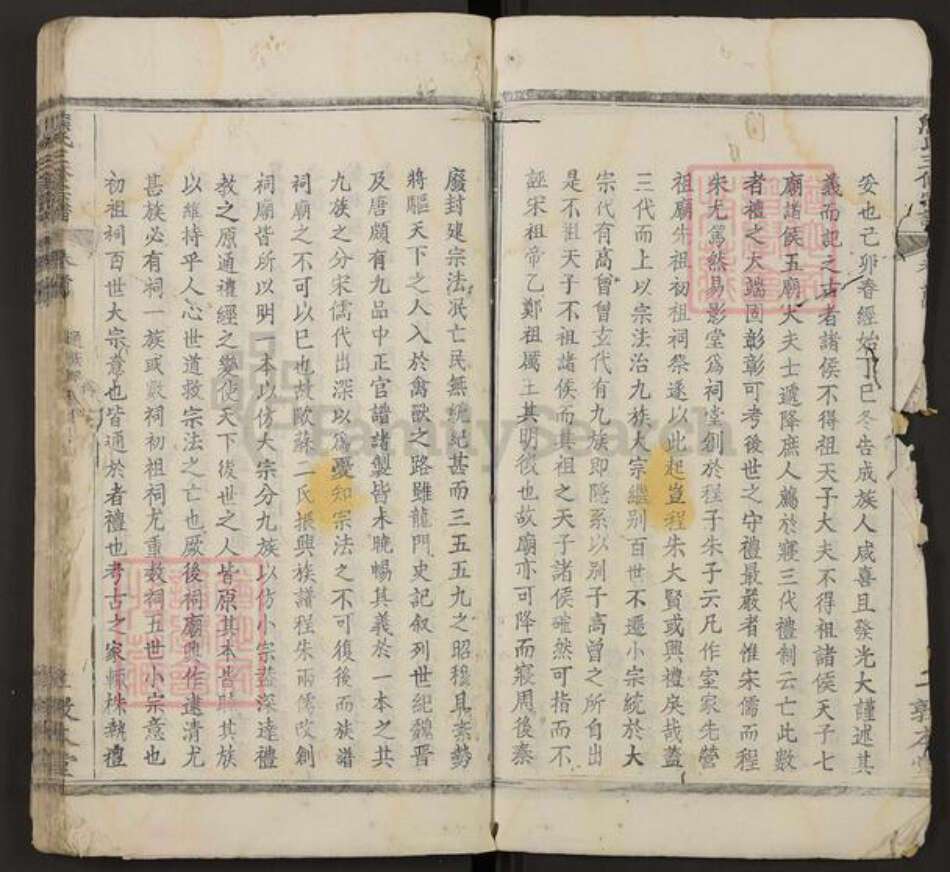 妥也己卯春經始丁巳冬告成族人咸喜且發光大謹述其
義而記之古者諸侯不得祖天子大夫不得祖諸侯天子七
廟諸侯五廟大夫士遞降庶人薦於寢三代禮制云亡此數
者禮之大端固彰彰可考後世之守禮最嚴者惟宋儒而程
朱尤篤然易影堂為祠堂創於程子朱子云凡作室家先營
祖廟先祖初祖祠祭遂以此起豈程朱大賢或興禮戾哉蓋
三代而上以宗法治九族大宗繼別百世不遷小宗統於大
宗代有高曾曾玄代有九族即隱系以別子高曾之所自出
是不祖天子不祖諸侯而其祖之天子諸侯確然可指而不
誣宋祖帝乙鄭祖厲王其明徵也故廟亦可降而寢周後秦
廢封建宗法泯亡民無統紀甚而三五五九之昭穆具紊勢
將驅天下之人入於禽獸之路雖龍門史記叙列世紀魏晉
及唐頗有九品中正官譜諸製皆未曉暢其義於一本之共
九族之分宋儒代出深以為憂知宗法之不可復後而族譜
祠廟之不可以已也故歐蘇二氏振興族譜程朱兩儒改創
祠廟皆所以明一本以仿大宗分九族以仿小宗蓋深達禮
教之原通禮經之變使天下後世之人皆原其本皆睦其族
以維持乎人心世道救宗法之亡也厥後祠廟興作逮清尤
甚族必有祠一族或數祠初祖祠尤重數祠五世小宗意也
初祖祠百世大宗意也皆通於者禮也考古之家師株執禮
FamilySearch